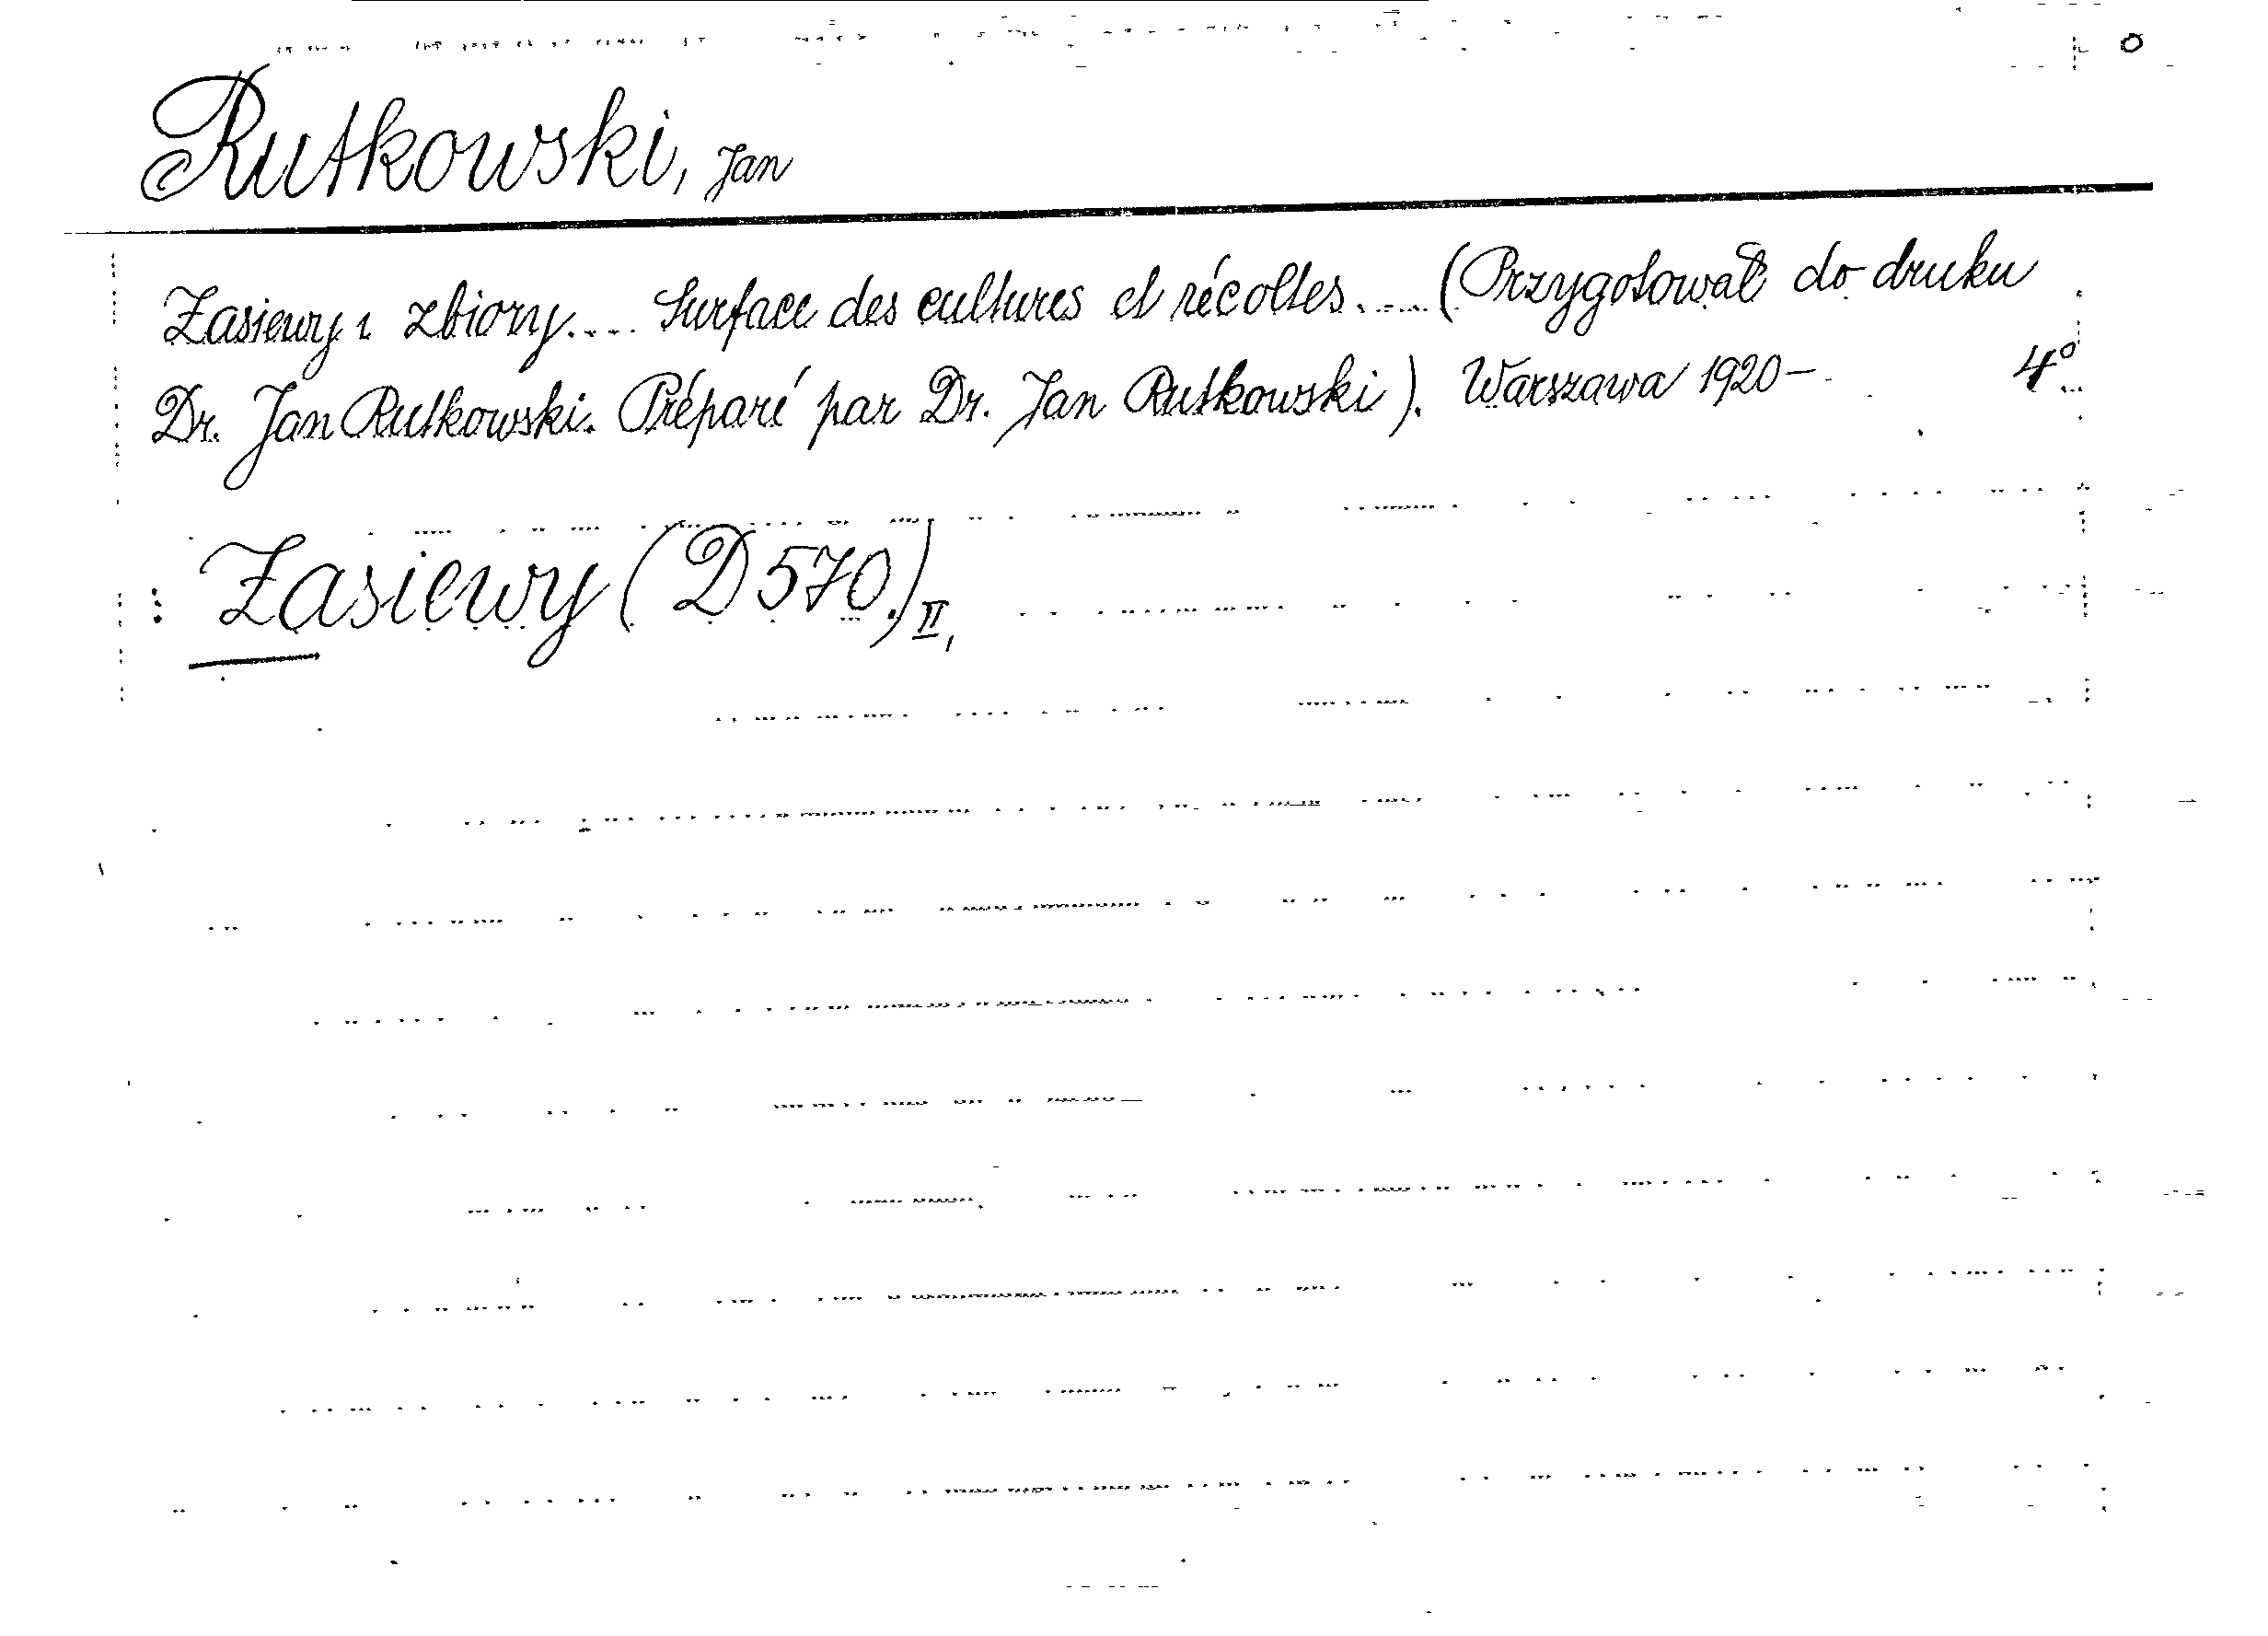 Rutkowski, Jan
Zasiewy i zbiory.... Surface des cultures et récoltes..... (Przygotował do druku
Dr. Jan Rutkowski. Préparé par Dr. Jan Rutkowski). Warszawa 1920- 4°
: Zasiewy (D 570.) II,